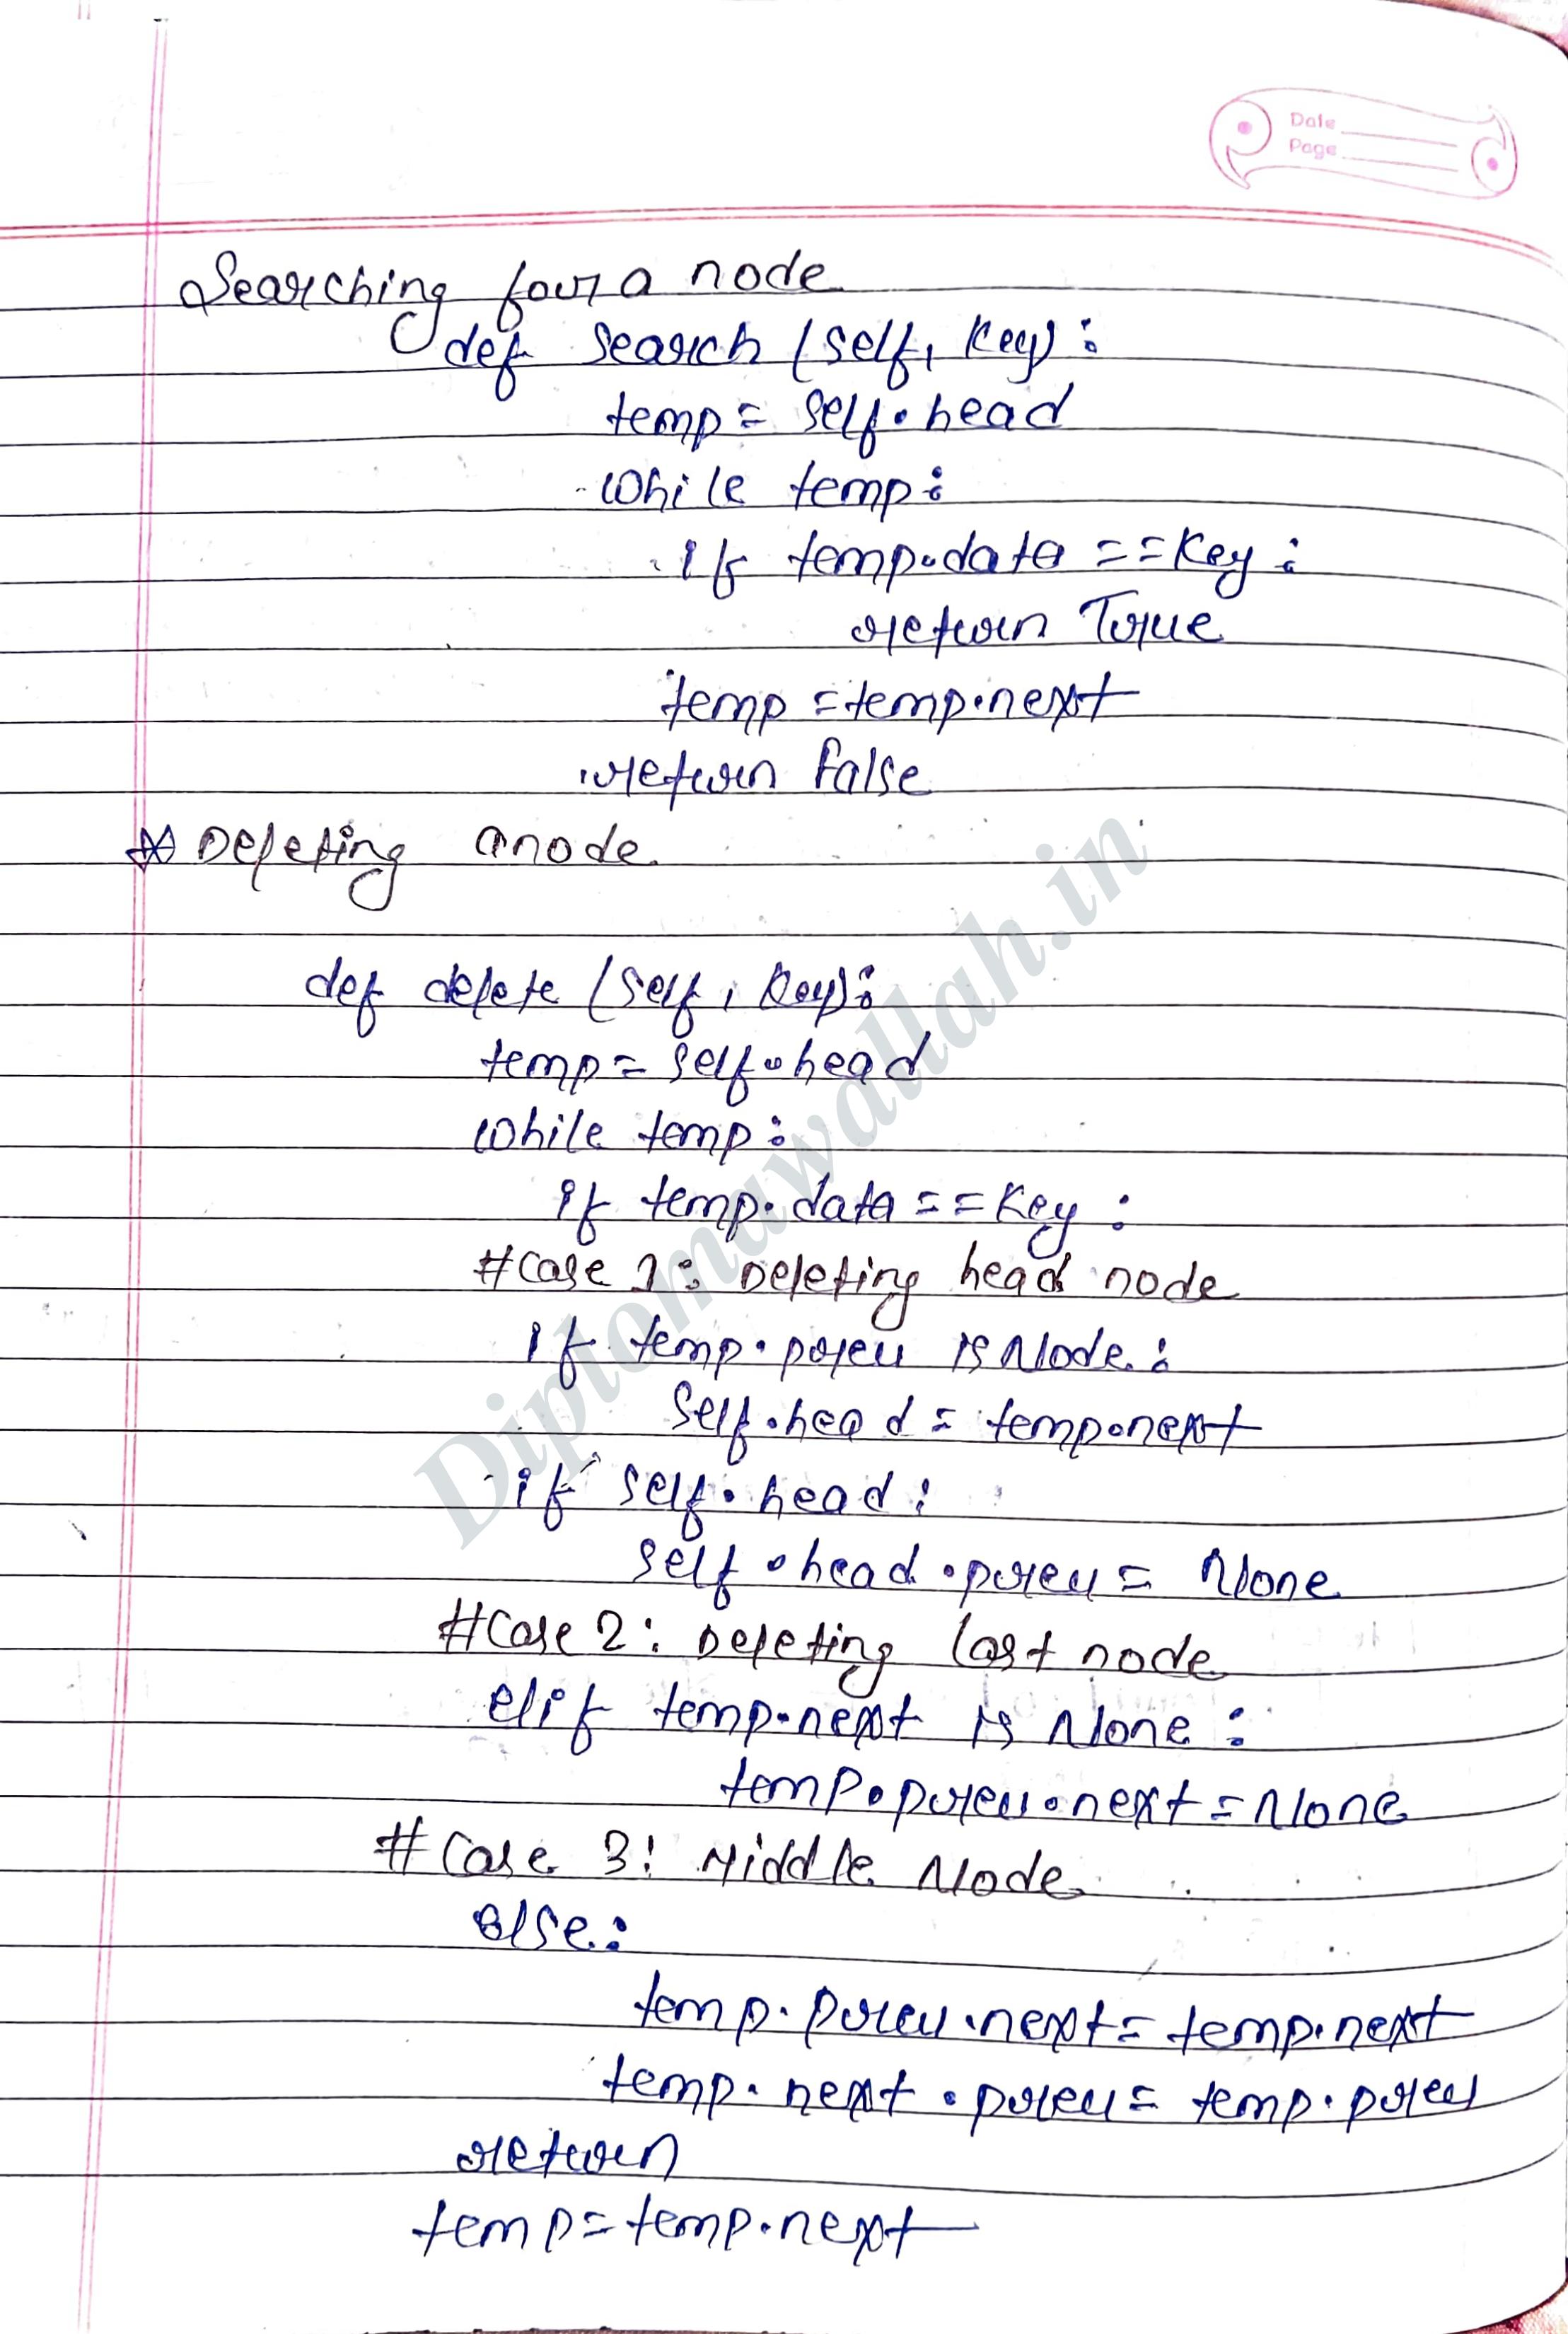 Date
Page
Searching for a node
def search (self, key):
temp = self.head
while temp:
if temp.data == key:
return True
temp = temp.next
return false
* Deleting a node
def delete (self, key):
temp = self.head
while temp:
if temp.data == key:
#Case 1: Deleting head node
if temp.prev is Node:
self.head = temp.next
if self.head:
self.head.prev = None
#Case 2: Deleting last node
elif temp.next is None:
temp.prev.next = None
#Case 3: Middle Node
else:
temp.prev.next = temp.next
temp.next.prev = temp.prev
return
temp = temp.next
Diplomawallah.in